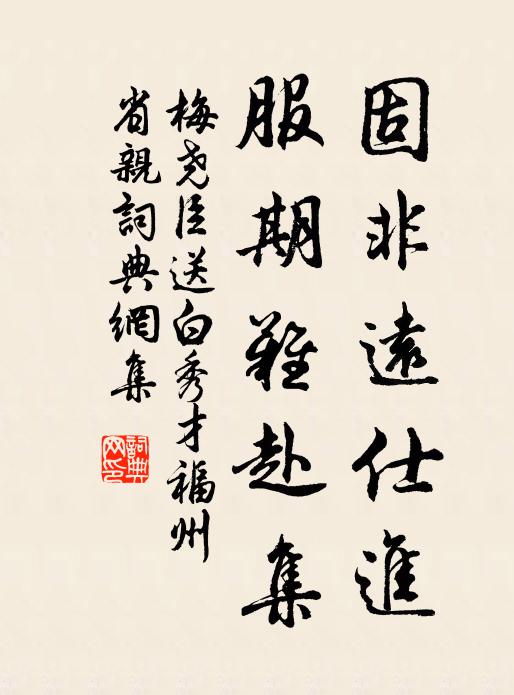 固非遠仕進
服期難赴集
梅尧臣送白秀才福州
省親詞典網集
詞典网印